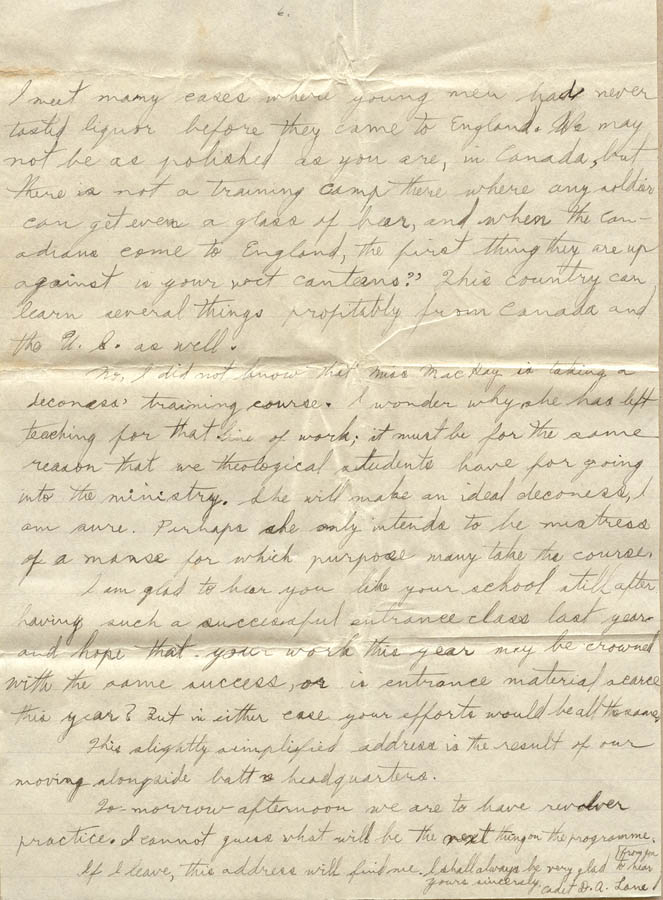 6.
I meet many cases where young men had never
tasted liquor before they came to England. We may
not be as polished as you are, in Canada, but
there is not a training camp there where any soldier
can get even a glass of beer, and when the Can-
adians come to England, the first thing they are up
against is your wet canteens?" This country can
learn several things profitably from Canada and
the U. S. as well.
No, I did not know that Miss MacKay is taking a
deconess' training course. I wonder why she has left
teaching for that line of work; it must be for the same
reason that we theological students have for going
into the ministry. She will make an ideal deconess, I
am sure. Perhaps she only intends to be mistress
of a manse for which purpose many take the course.
I am glad to hear you like your school still after
having such a successful entrance class last year
and hope that your work this year may be crowned
with the same success, or is entrance material scarce
this year? But in either case your efforts would be all the same.
This slightly simplified address is the result of our
moving alongside batt'n headquarters.
To-morrow afternoon we are to have revolver
practice. I cannot guess what will be the next thing on the programme.
If I leave, this address will find me. I shall always be very glad to hear
from you
yours sincerely Cadet D. A. Lane